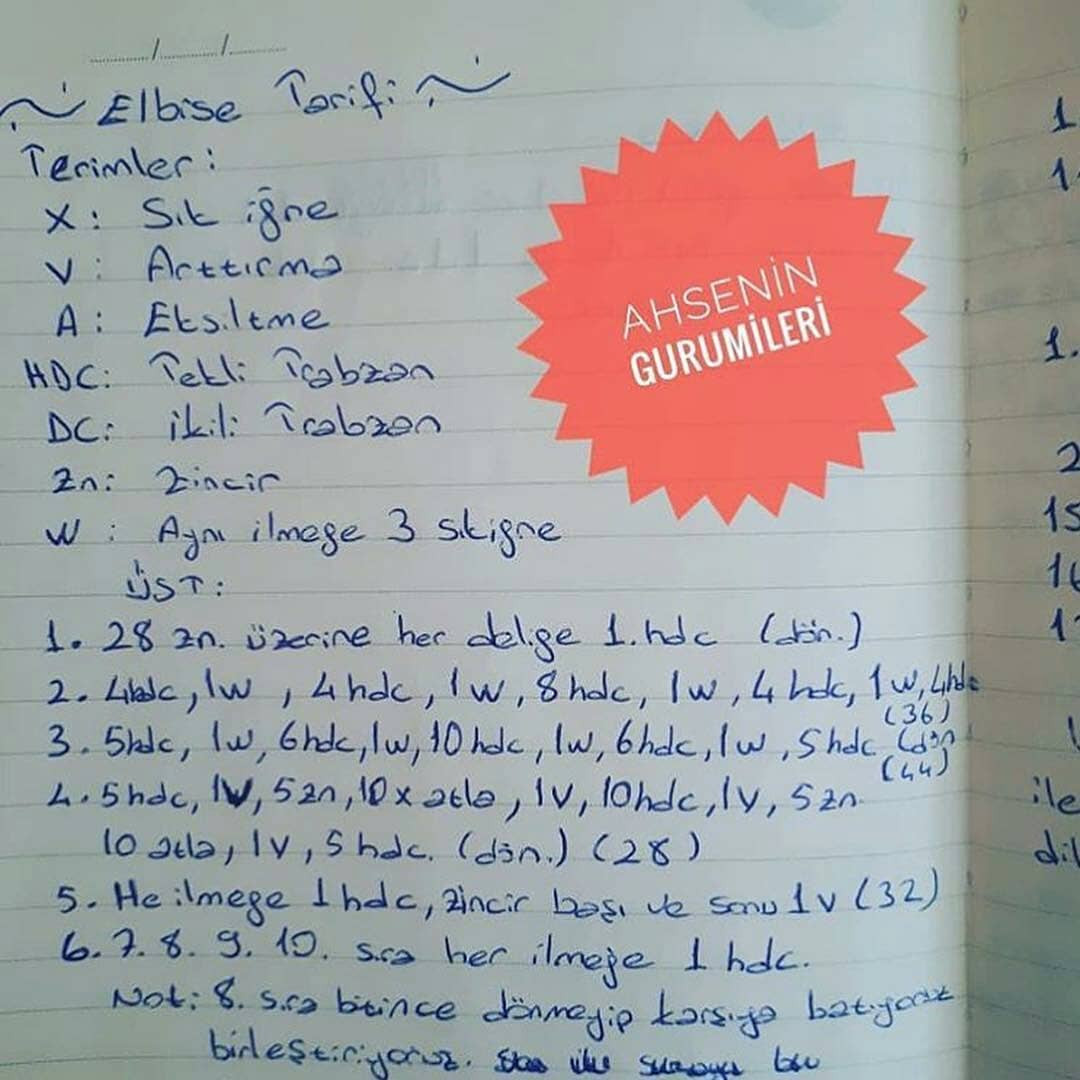 Elbise Tarifi
Terimler:
X: Sık iğne
V: Arttırma
A: Eksiltme
HDC: Tekli Trabzan
DC: ikili Trabzan
Zn: Zincir
W: Aynı ilmeğe 3 sıkiğne
ÜST:
1. 28 zn. üzerine her deliğe 1.hdc (dön.)
2. 4hdc, 1w, 4hdc, 1w, 8hdc, 1w, 4hdc, 1w, 4hdc
(36)
3. 5hdc, 1w, 6hdc, 1w, 10hdc, 1w, 6hdc, 1w, 5hdc (dön
(44)
4. 5hdc, 1V, 5zn, 10x atla, 1V, 10hdc, 1v, 5zn
10 atla, 1v, 5hdc. (dön.) (28)
5. He ilmeğe 1hdc, zincir başı ve sonu 1v (32)
6. 7. 8. 9. 10. sıra her ilmeğe 1 hdc.
Not: 8. sıra bitince dönmeyip karşıya batıyoruz
birleştiriyoruz.
AHSENİN
GURUMİLERİ
1.
1.
1.
2
15
16
1
ile
dil